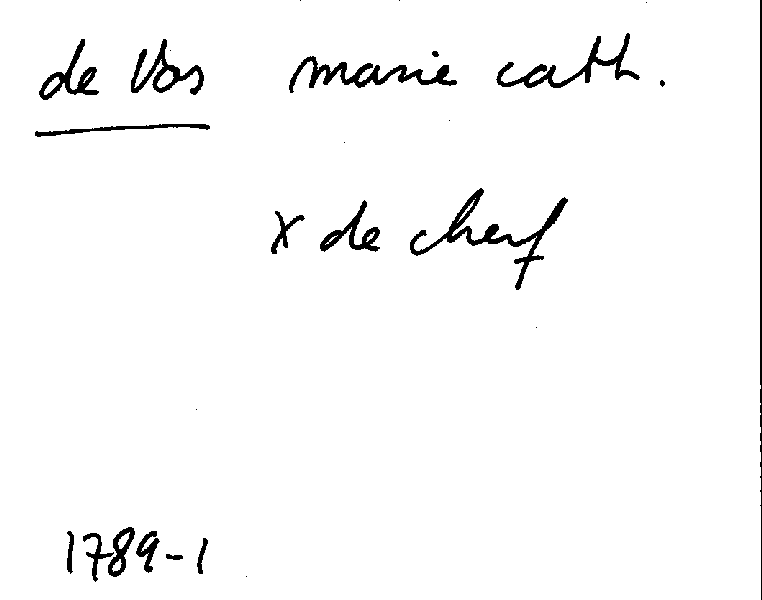 de Vos marie cath.
x de cherf
1789-1